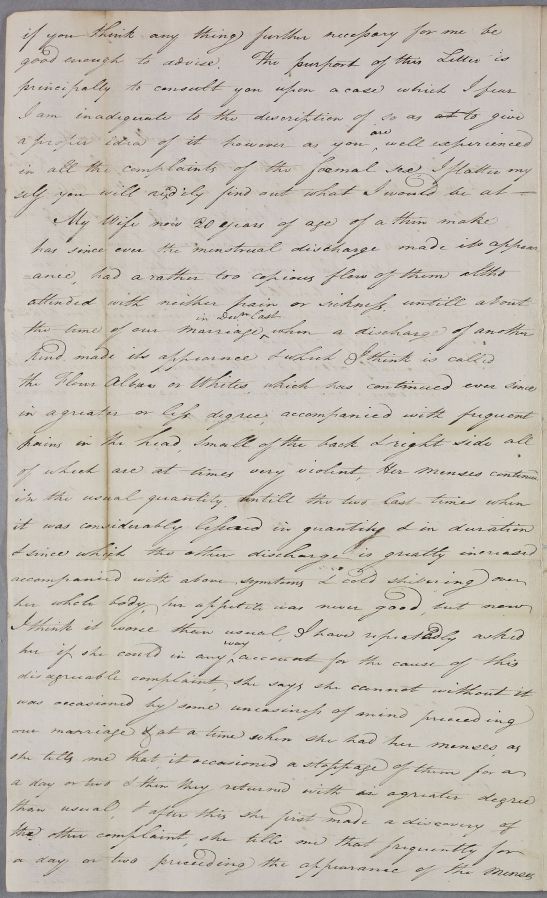 if you think any thing further necessary for me be
good enough to advise. The purport of this Letter is
principally to consult you upon a case which I fear
I am inadequate to the description of so as at to give
a proper idea of it however as you are well experienced
in all the complaints of the foemal sex I flatter my
self you will redely find out what I would be at —
My Wife now 20 years of age of a thin make
has since ever the menstrual discharge made its appear
=ance, had a rather too copious flow of them altho
attended with neither pain or sickness, untill about
the time of our Marriage in Decr last when a discharge of another
kind made its appearnce & which I think is called
the Flour Albus or Whites, which has continued ever since
in a greater or less degree, accompanied with frequent
pains in the head, small of the back & right side all
of which are at times very violent, Her menses continu
in the usual quantity untill the two last times when
it was considerably lessened in quantity & in duration
& since which the other discharge is greatly increased
accompanied with above symtoms & cold shivering over
her whole body, her appetite was never good, but now
I think it worse than usual, I have repeatedly asked
her if she could in any way account for the cause of this
disagreeable complaint, she says she cannot without it
was occasioned by some uneasiness of mind preceeding
our marriage & at a time when she had her menses, as
she tells me that it occasioned a stoppage of them for a
a day or two & then they returned with a greater degree
than usual, & after this she first made a discovery of
the other complaint, she tells me that frequently for
a day or two preceeding the appearance of the Menses